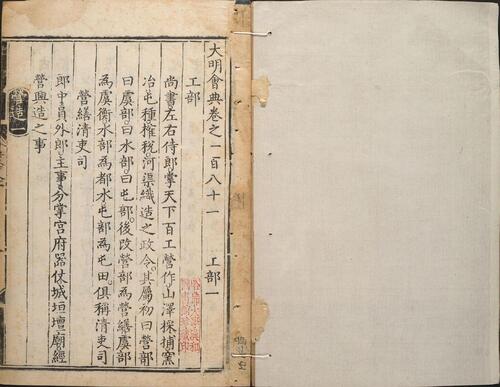 大明會典卷之一百八十一 工部一
工部
尚書左右侍郎掌天下百工營作山澤採捕窯
冶屯種榷稅河渠織造之政令其屬初曰營部
曰虞部曰水部曰屯部後改營部為營繕虞部
為虞衡水部為都水屯部為屯田俱稱清吏司
營繕清吏司
郎中員外郎主事分掌宮府器仗城垣壇廟經
營興造之事
營造一